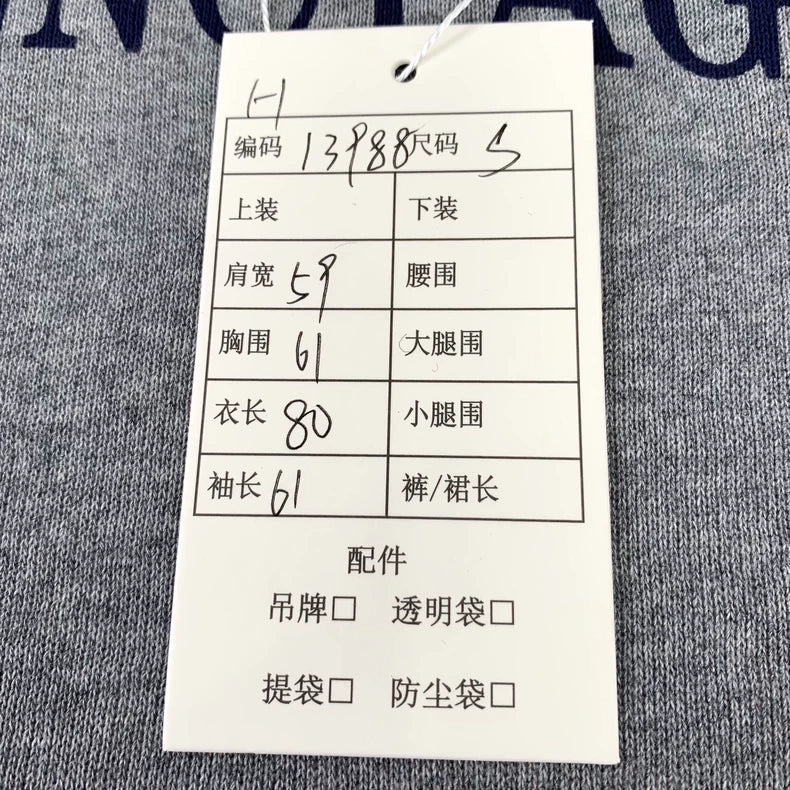 NOTAG
H
编码 13988 尺码 S
上装 下装
肩宽 59 腰围
胸围 61 大腿围
衣长 80 小腿围
袖长 61 裤/裙长
配件
吊牌□ 透明袋□
提袋□ 防尘袋□